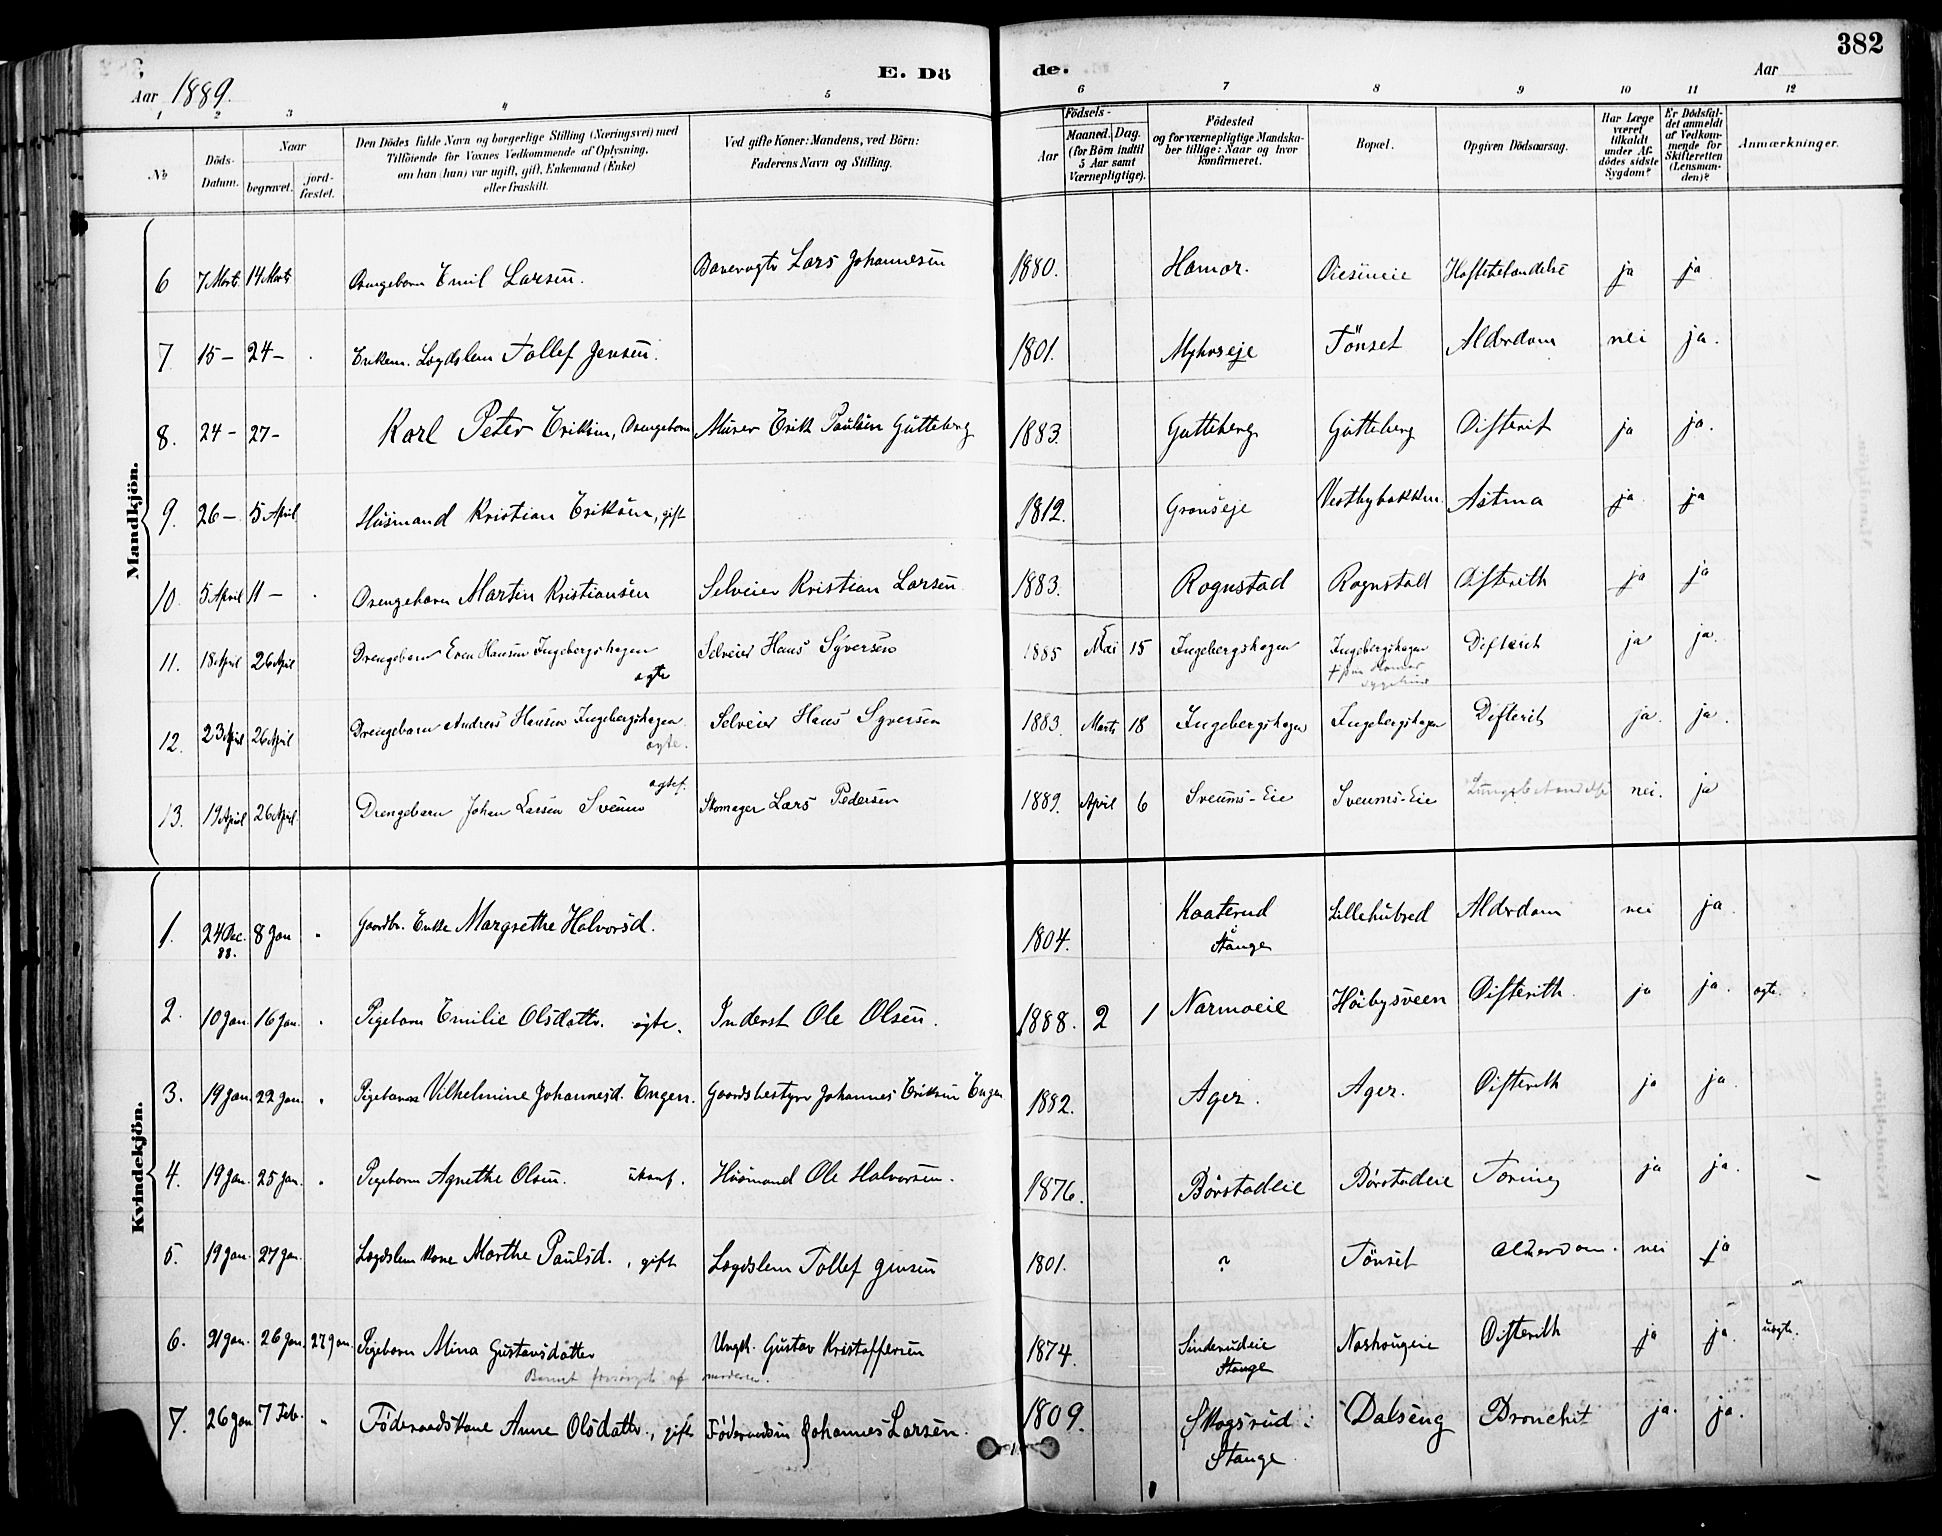 382
Aar 1889.
E. Dö
de.
Aar
1 2 3 4 5 6 7 8 9 10 11 12
No
Döds-Datum.
Naar
begravet.
jord-fæstet.
Den Dödes fulde Navn og borgerlige Stilling (Næringsvei) med
Tilföiende for Voxnes Vedkommende af Oplysning,
om han (hun) var ugift, gift, Enkemand (Enke)
eller fraskilt.
Ved gifte Koner: Mandens, ved Börn:
Faderens Navn og Stilling.
Födsels-
Aar
Maaned. Dag.
(for Börn indtil
5 Aar samt
Værnepligtige).
Födested
og for værnepligtige Mandska-
ber tillige: Naar og hvor
konfirmeret.
Bopæl.
Opgiven Dödsaarsag.
Har Læge
været
tilkaldt
under Af-
dödes sidste
Sygdom?
Er Dödsfal-
det anmeldt
af Vedkom-
mende for
Skifteretten
(Lensman-
den)?
Anmærkninger.
Mandkjön.
6 7 Marts 14 Marts Drengebarn Emil Larsen. Banevogtr Lars Johannesen 1880. Hamar. Hoftebetændelse ja ja
7 15 - 24 - Enkem. Lægdslem Tollef Jensen. 1801. Tönset Alderdom nei ja.
8. 24 - 27 - Karl Peter Eriksen, Drengebarn Murer Erik Paulsen Gutteberg 1883. Gutteberg Gutteberg Difterit ja ja.
9. 26 - 5 April Husmand Kristian Eriksen, gift 1812. Gronseje Vestbybakken Astma ja ja
10. 5 April 11 - Drengebarn Martin Kristiansen Selveier Kristian Larsen 1883. Rognstad Rognstad Difterith ja ja
11. 18 April 26 April Drengebarn Even Hansen Ingebergshagen ægte Selveier Hans Syversen 1885 Mai 15 Ingebergshagen Ingebergshagen
† paa Hamar sygehus Difterit ja ja.
12. 23 April 26 April Drengebarn Andreas Hansen Ingebergshagen ægte. Selveier Hans Syversen 1883. Marts 18 Ingebergshagen Ingebergshagen Difterit ja. ja.
13. 19 April 26 April Drengebarn Johan Larsen Sveum ægtef. Skomager Lars Pedersen 1889. April 6 Sveums-Eie Sveums-Eie Lungebetændelse nei. ja
Kvindekjön.
1. 24 Dec. 88. 8 Jan " Gaardbr. Enke Margrethe Halvorsd. 1804. Kaaterud
i Stange Lillehubred Alderdom nei ja.
2. 10 Jan. 16 Jan. " Pigebarn Emilie Olsdattr. ægte. Inderst Ole Olsen. 1888. 2 1 Narmoeie Höibysveen Difterith. ja ja. ægte.
3. 19 Jan. 22 Jan. " Pigebarn Vilhelmine Johannesd. Engen. Gaardsbestyrer Johannes Eriksen Engen 1882. Ager. Ager. Difterith ja ja.
4. 19 Jan. 25 Jan. " Pigebarn Agnethe Olsen. ukonf. Husmand Ole Halvorsen. 1876. Börstadeie Börstadeie Tæring ja ja.
5. 19 Jan. 27 Jan. Lægdslem Kone Marthe Paulsd., gift Lægdslem Tollef Jensen 1801. ? Tönset Alderdom. nei ja
6. 21 Jan. 26 Jan. 27 Jan. Pigebarn Mina Gustavsdatter Ungk. Gustav Kristoffersen 1874. Sinderudeie
Stange Naskougeie Difterith ja ja. uægte.
Barnet forsörget af moderen.
7. 26 Jan 7 Feb. " Föderaadskone Anne Olsdattr., gift Föderaadsm Johannes Larsen. 1809. Skogsrud i
Stange Dalseng Bronchit ja. ja.